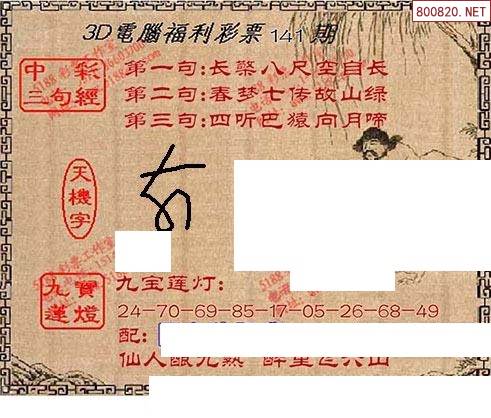 800820.NET
3D電腦福利彩票141期
中彩
三句經
第一句:长檠八尺空自长
第二句:春梦七传故山绿
第三句:四听巴猿向月啼
天機字
九寶
蓮燈
九宝莲灯:
24-70-69-85-17-05-26-68-49
配:
仙人